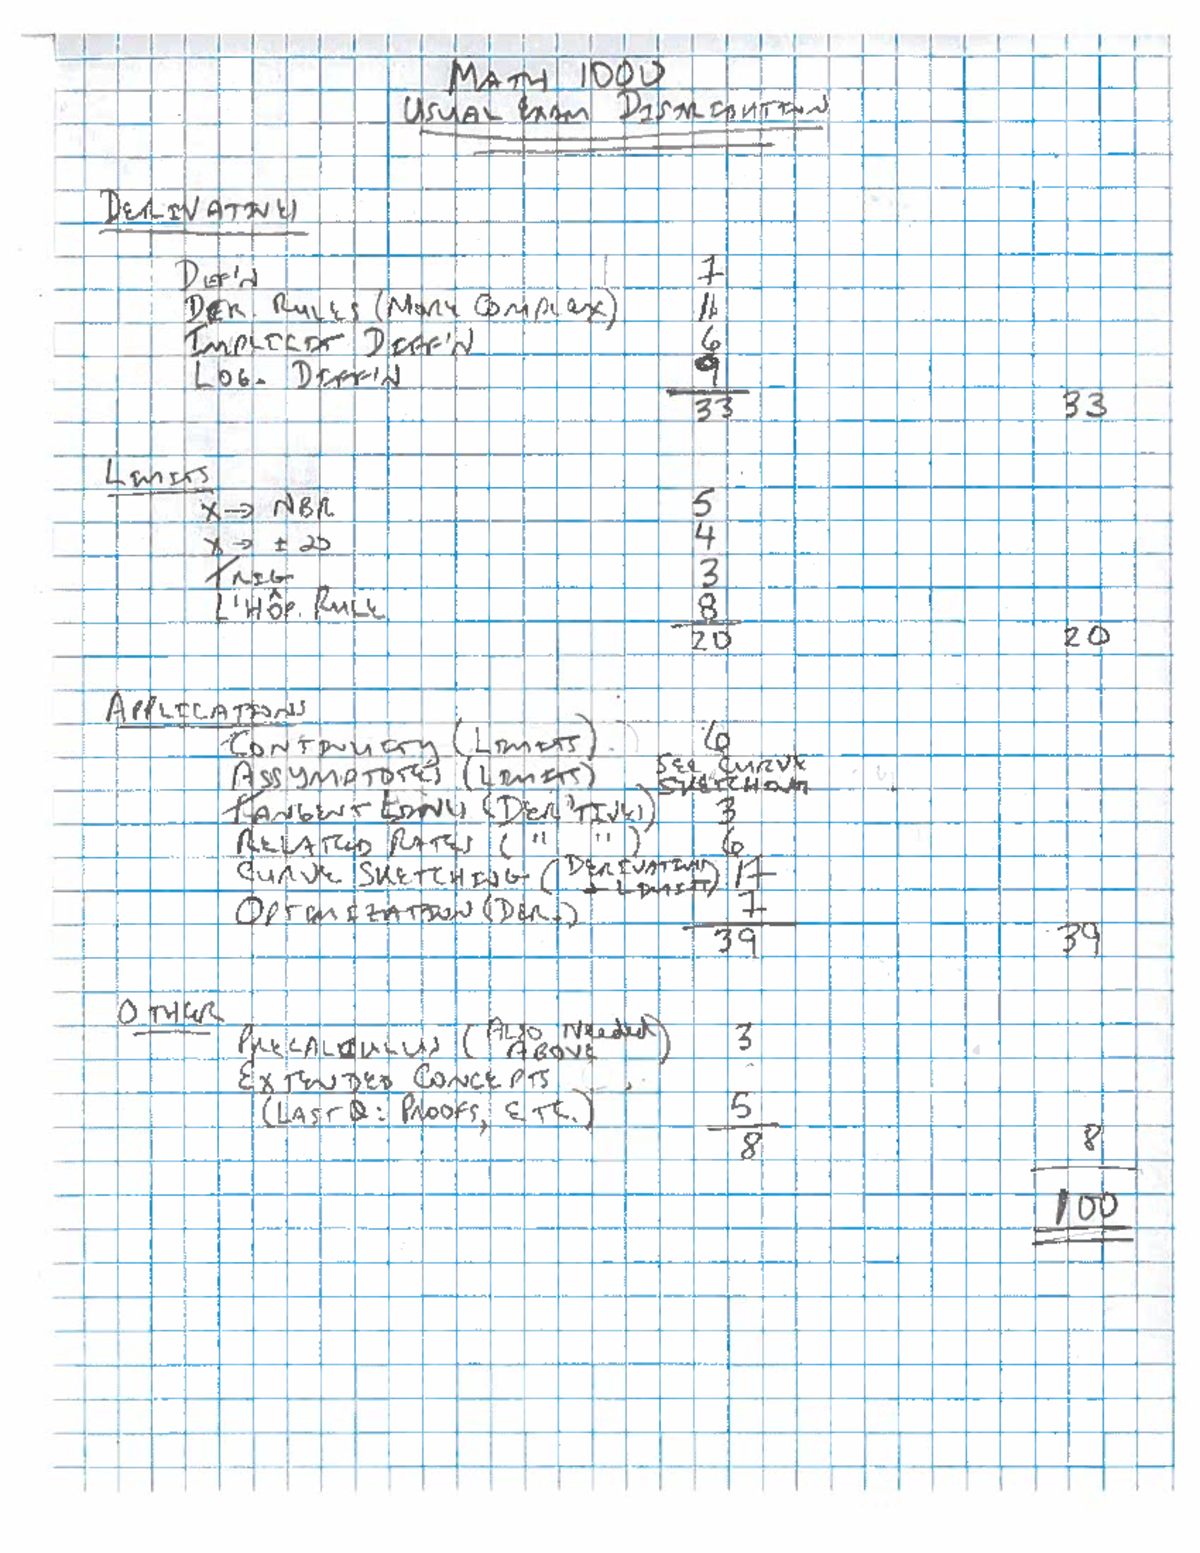 MATH 1000
USUAL EXAM DISTRIBUTION
DERIVATIVES
DEF'N 7
DER. RULES (MORE COMPLEX) 11
IMPLICIT DIFF'N 6
LOG. DIFF'N 9
33 33
LIMITS
X → NBR 5
X → ± ∞ 4
TRIG 3
L'HÔP. RULE 8
20 20
APPLICATIONS
CONTINUITY (LIMITS) 6
ASSYMPTOTES (LIMITS) SEE CURVE SKETCHING
TANGENT EQNS (DER'TIVES) 3
RELATED RATES ( " " ) 6
CURVE SKETCHING (DERIVATIVES + LIMITS) 17
OPTIMIZATION (DER.) 7
39 39
OTHER
PRECALCULUS (ALSO Needed ABOVE) 3
EXTENDED CONCEPTS
(LAST Q: PROOFS, ETC.) 5
8 8
100